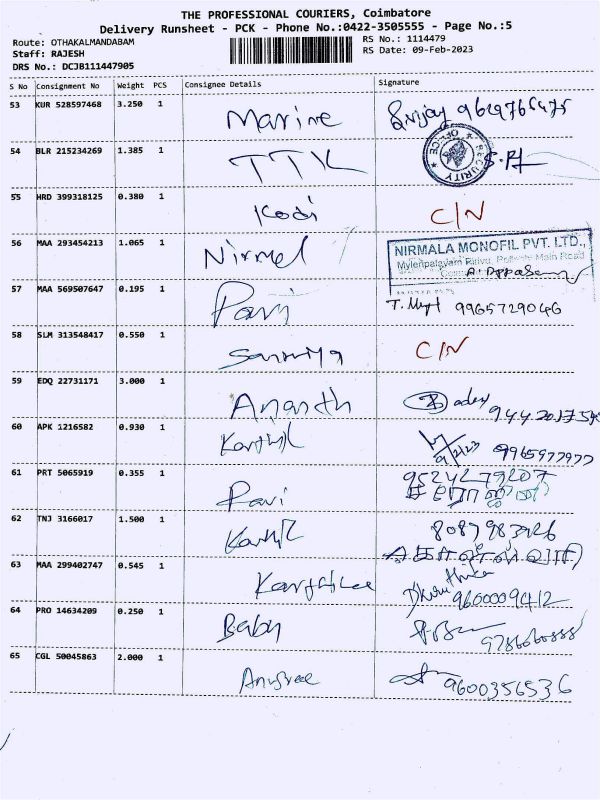 THE PROFESSIONAL COURIERS, Coimbatore
Delivery Runsheet - PCK - Phone No.:0422-3505555 - Page No.:5
Route: OTHAKALMANDABAM RS No.: 1114479
Staff: RAJESH RS Date: 09-Feb-2023
DRS No.: DCJB111447905
S No Consignment No Weight PCS Consignee Details Signature
53 KUR 528597468 3.250 1 Marine
54 BLR 215234269 1.385 1 TTK
SECURITY OFFICE
55 HRD 399318125 0.380 1 Kodi C/N
56 MAA 293454213 1.065 1 Nirmel
NIRMALA MONOFIL PVT. LTD.,
Main Road
57 MAA 569507647 0.195 1 Pavi 9965729046
58 SLM 313548417 0.550 1 C/N
59 EDQ 22731171 3.000 1 Ananth
60 APK 1216582 0.930 1 Karthik 9/2/23
61 PRT 5065919 0.355 1 Ravi 9524279207
62 TNJ 3166017 1.500 1 Karthik
63 MAA 299402747 0.545 1 9600009412
64 PRO 14634209 0.250 1 Baby
65 CGL 50045863 2.000 1 Anusree 9600356536